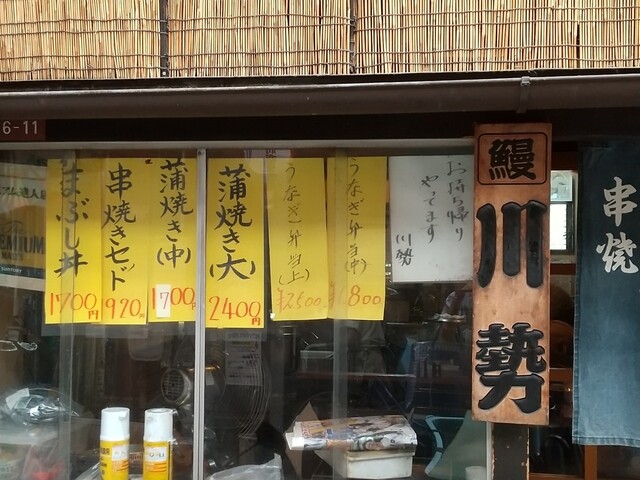 6-11
まぶし丼
1700円
串焼きセット
920円
蒲焼き(中)
1700円
蒲焼き(大)
2400円
うなぎ弁当(上)
¥2500
うなぎ弁当(中)
¥1,800
お持ち帰り
やってます
川勢
鰻
川勢
串焼